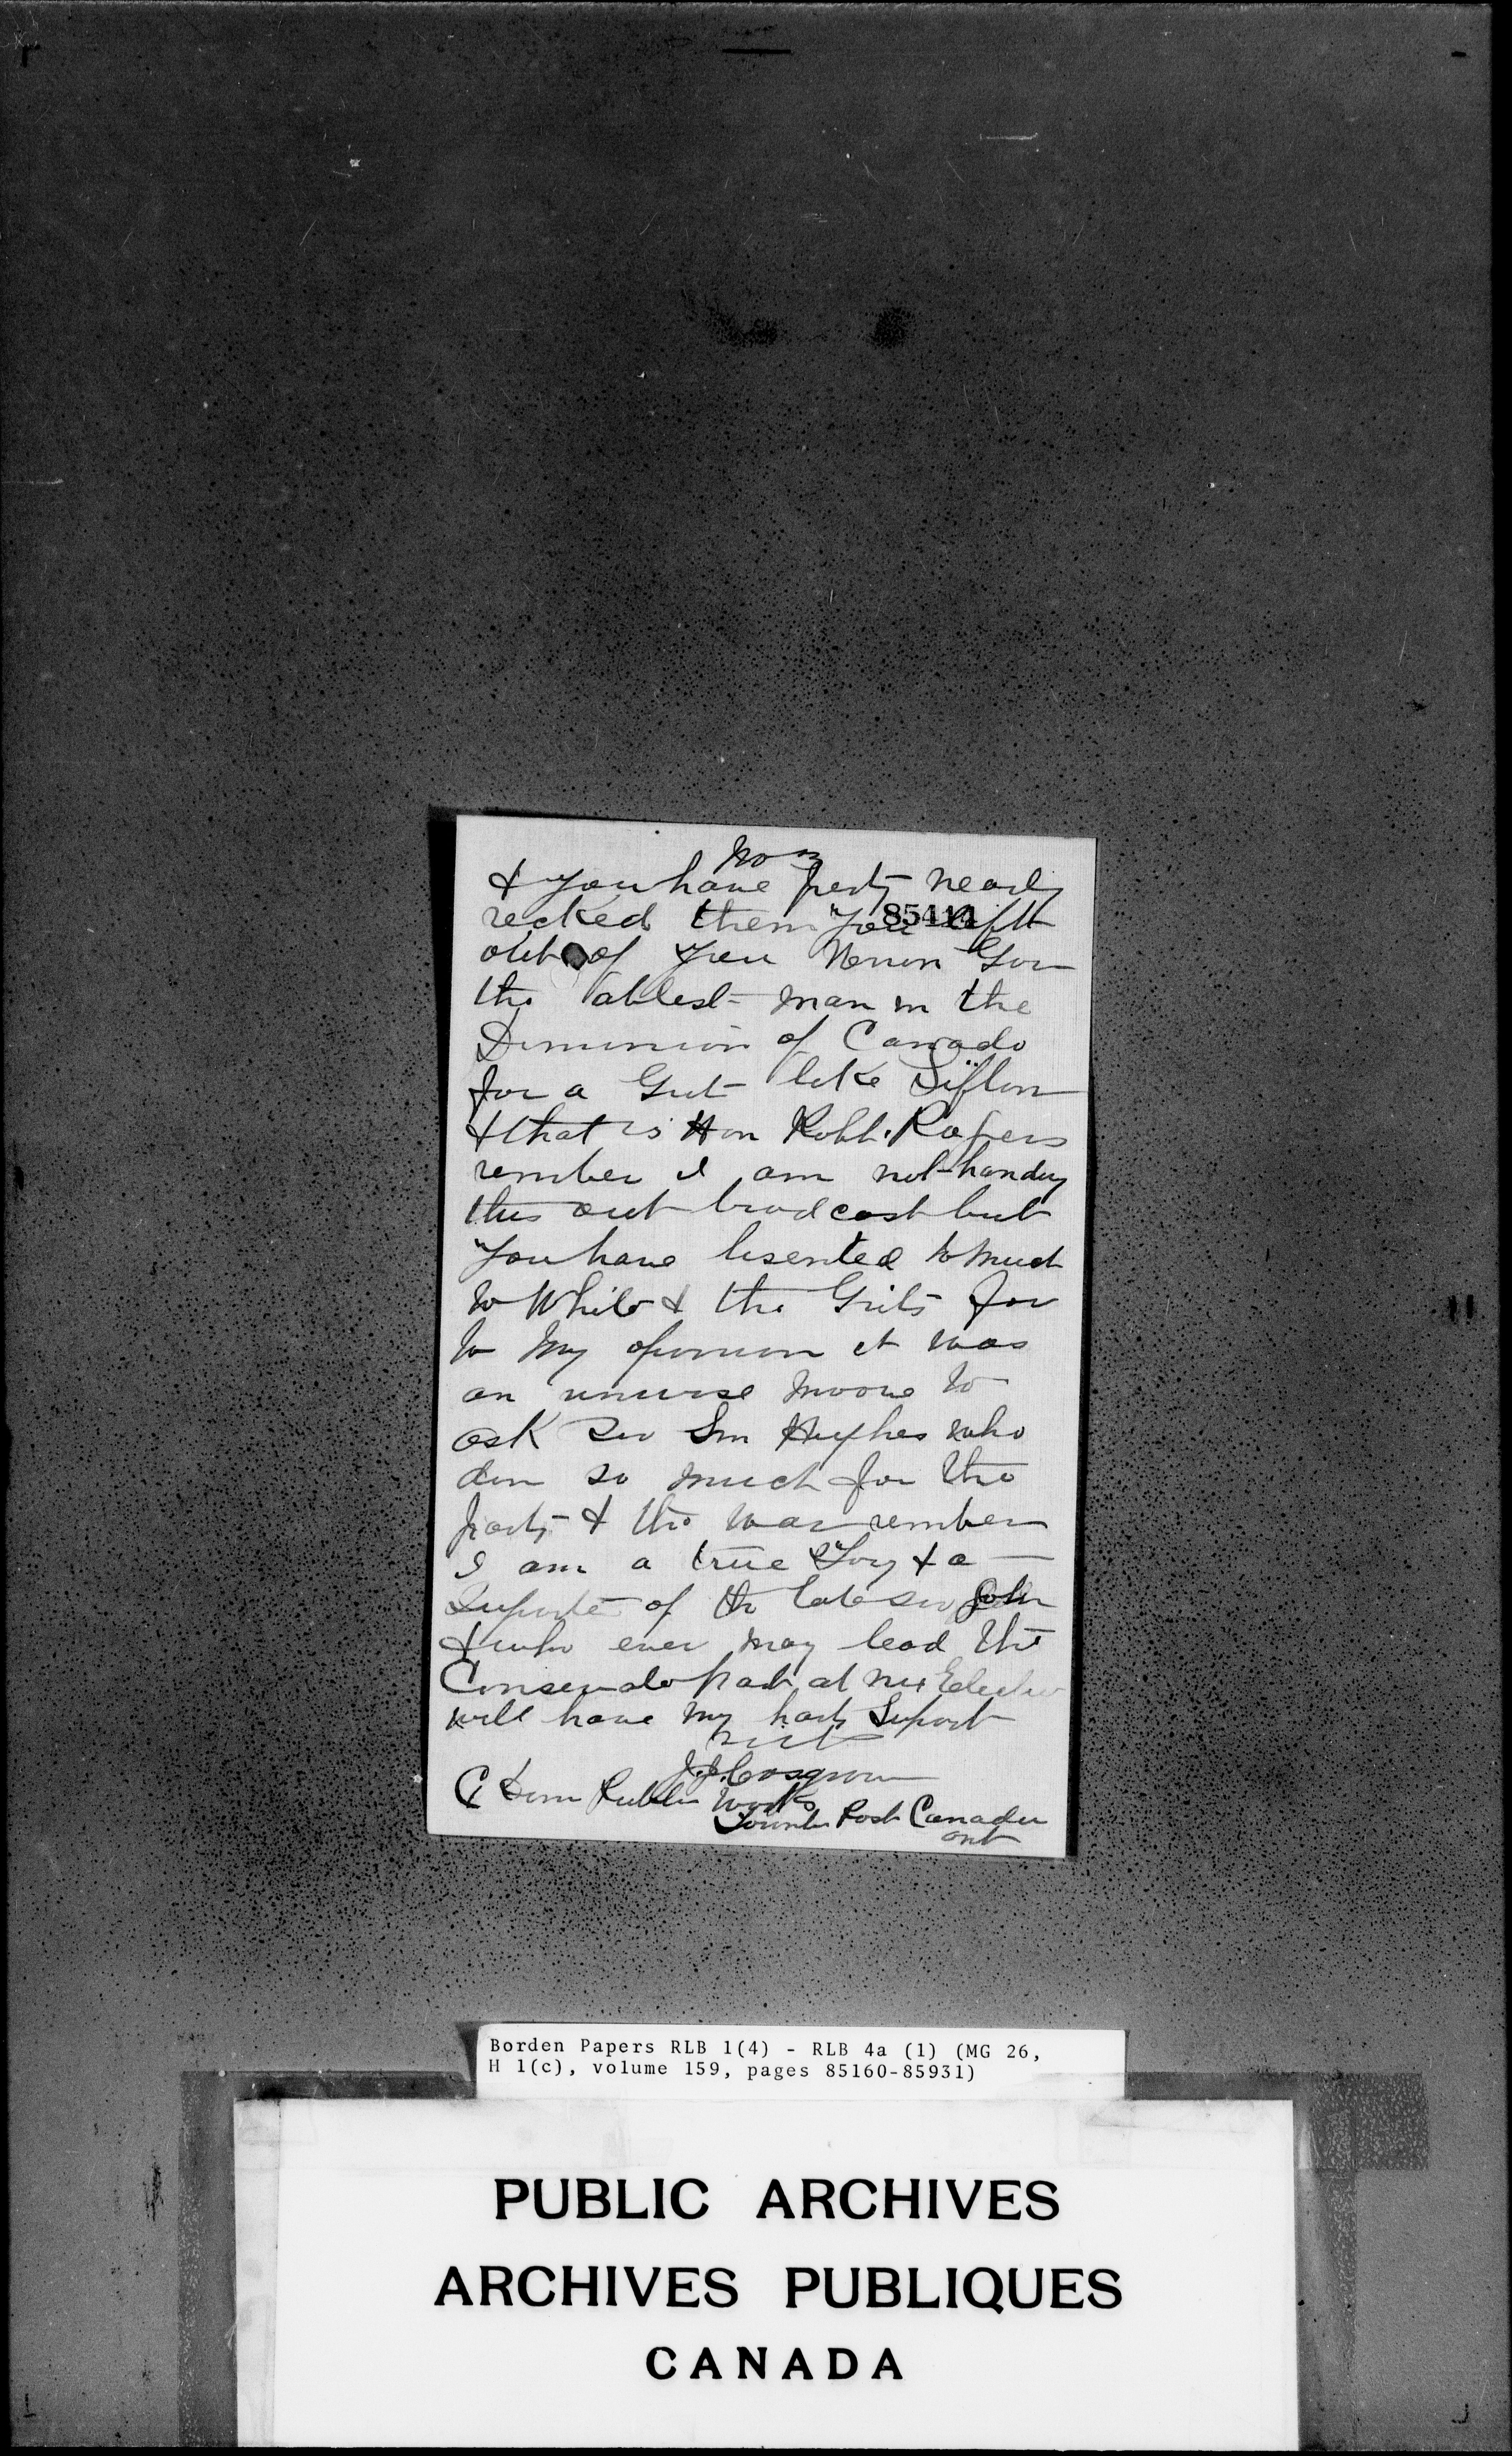 No 3
& you have party nearly
recked them you left
85414
out of you Gov
the ablest man in the
Dominion of Canada
for a Grit like Sifton
& that is Hon Robt. Rogers
rember I am not handing
this out broad cast but
You have lisented to much
to White & the Grits for
to my opinion it was
an unwise moove to
ask Sir Sam Hughes who
don so much for the
party & the war rember
I am a true Tory & a
Suporter of the late Sir John
& who ever may lead the
Conservato part at nex Election
will have my harty Suport
J.J. Cosgrove
C Dom Public Works
Post Canada
Ont
Borden Papers RLB 1(4) - RLB 4a (1) (MG 26,
H 1(c), volume 159, pages 85160-85931)
PUBLIC ARCHIVES
ARCHIVES PUBLIQUES
CANADA